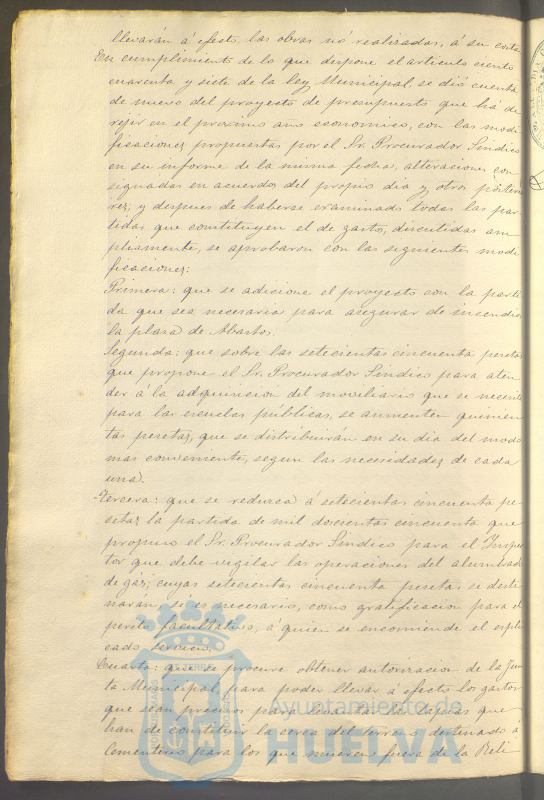 llevarán á efecto las obras no realizadas, á su costa
En cumplimiento de lo que dispone el artículo ciento
cuarenta y siete de la Ley Municipal, se dió cuenta
de nuevo del proyecto de presupuesto que há de
rejir en el proximo año economico, con las modi-
ficaciones propuestas por el Sr. Procurador Sindico
en su informe de la misma fecha, alteraciones con
signadas en acuerdos del propio dia y otros posterio
res; y despues de haberse examinado todas las par-
tidas que constituyen el de gastos, discutidas am
pliamente, se aprobaron con las siguientes modi
ficaciones:
Primera: que se adicione el proyecto con la parti
da que sea necesaria para asegurar de incendios
la plaza de Abastos.
Segunda: que sobre las setecientas cincuenta pesetas
que propone el Sr. Procurador Sindico para aten
der á la adquisicion del moviliario que se necesite
para las escuelas públicas, se aumenten quinien
tas pesetas, que se distribuirán en su dia del modo
mas conveniente, segun las necesidades de cada
una.
Tercera: que se reduzca á setecientas cincuenta pe
setas la partida de mil doscientas cincuenta que
propuso el Sr. Procurador Sindico para el Inspec
tor que debe vigilar las operaciones del alumbrado
de gás; cuyas setecientas cincuenta pesetas se desti
narán, si es necesario, como gratificacion para el
perito facultativo, á quien se encomiende el espli
cado servicio.
Cuarta: que se procure obtener autorizacion de la Jun
ta Municipal, para poder llevar á efecto los gastos
que sean precisos para levantar las tapias que
han de constituir la cerca del terreno destinado á
Cementerio para los que mueren fuera de la Reli
Ayuntamiento de
HUELVA